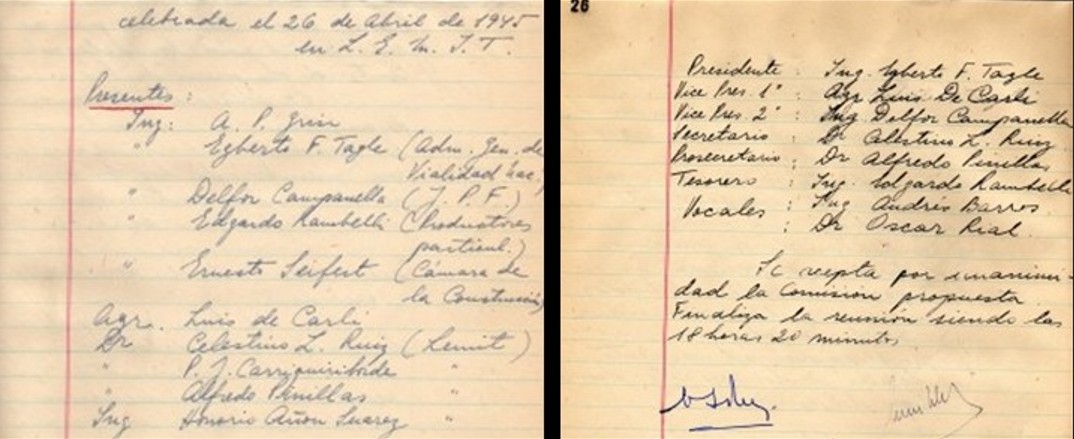 celebrada el 26 de Abril de 1945
en L. E. M. I. T.
Presentes :
Ing: A. P. Grin
" Egberto F. Tagle (Adm. Gen. de
Vialidad Nac.)
" Delfor Campanella (Y. P. F.)
" Edgardo Rambelli (Productores
particul.)
" Ernesto Seifert (Cámara de
la Construcción)
Agr. Luis de Carli
Dr Celestino L. Ruiz (Lemit)
" P. J. Carriquiriborde "
" Alfredo Pinillas "
Ing Honorio Añon Suarez "
26
Presidente : Ing. Egberto F. Tagle
Vice Pres. 1° : Agr Luis De Carli
Vice Pres. 2° : Ing Delfor Campanella
Secretario : Dr Celestino L. Ruiz
Prosecretario : Dr Alfredo Pinillas
Tesorero : Ing. Edgardo Rambelli
Vocales : Ing Andrés Barros
: Dr Oscar Rial
Se acepta por unanimi-
dad la Comisión propuesta.
Finaliza la reunión siendo las
18 horas 20 minutos